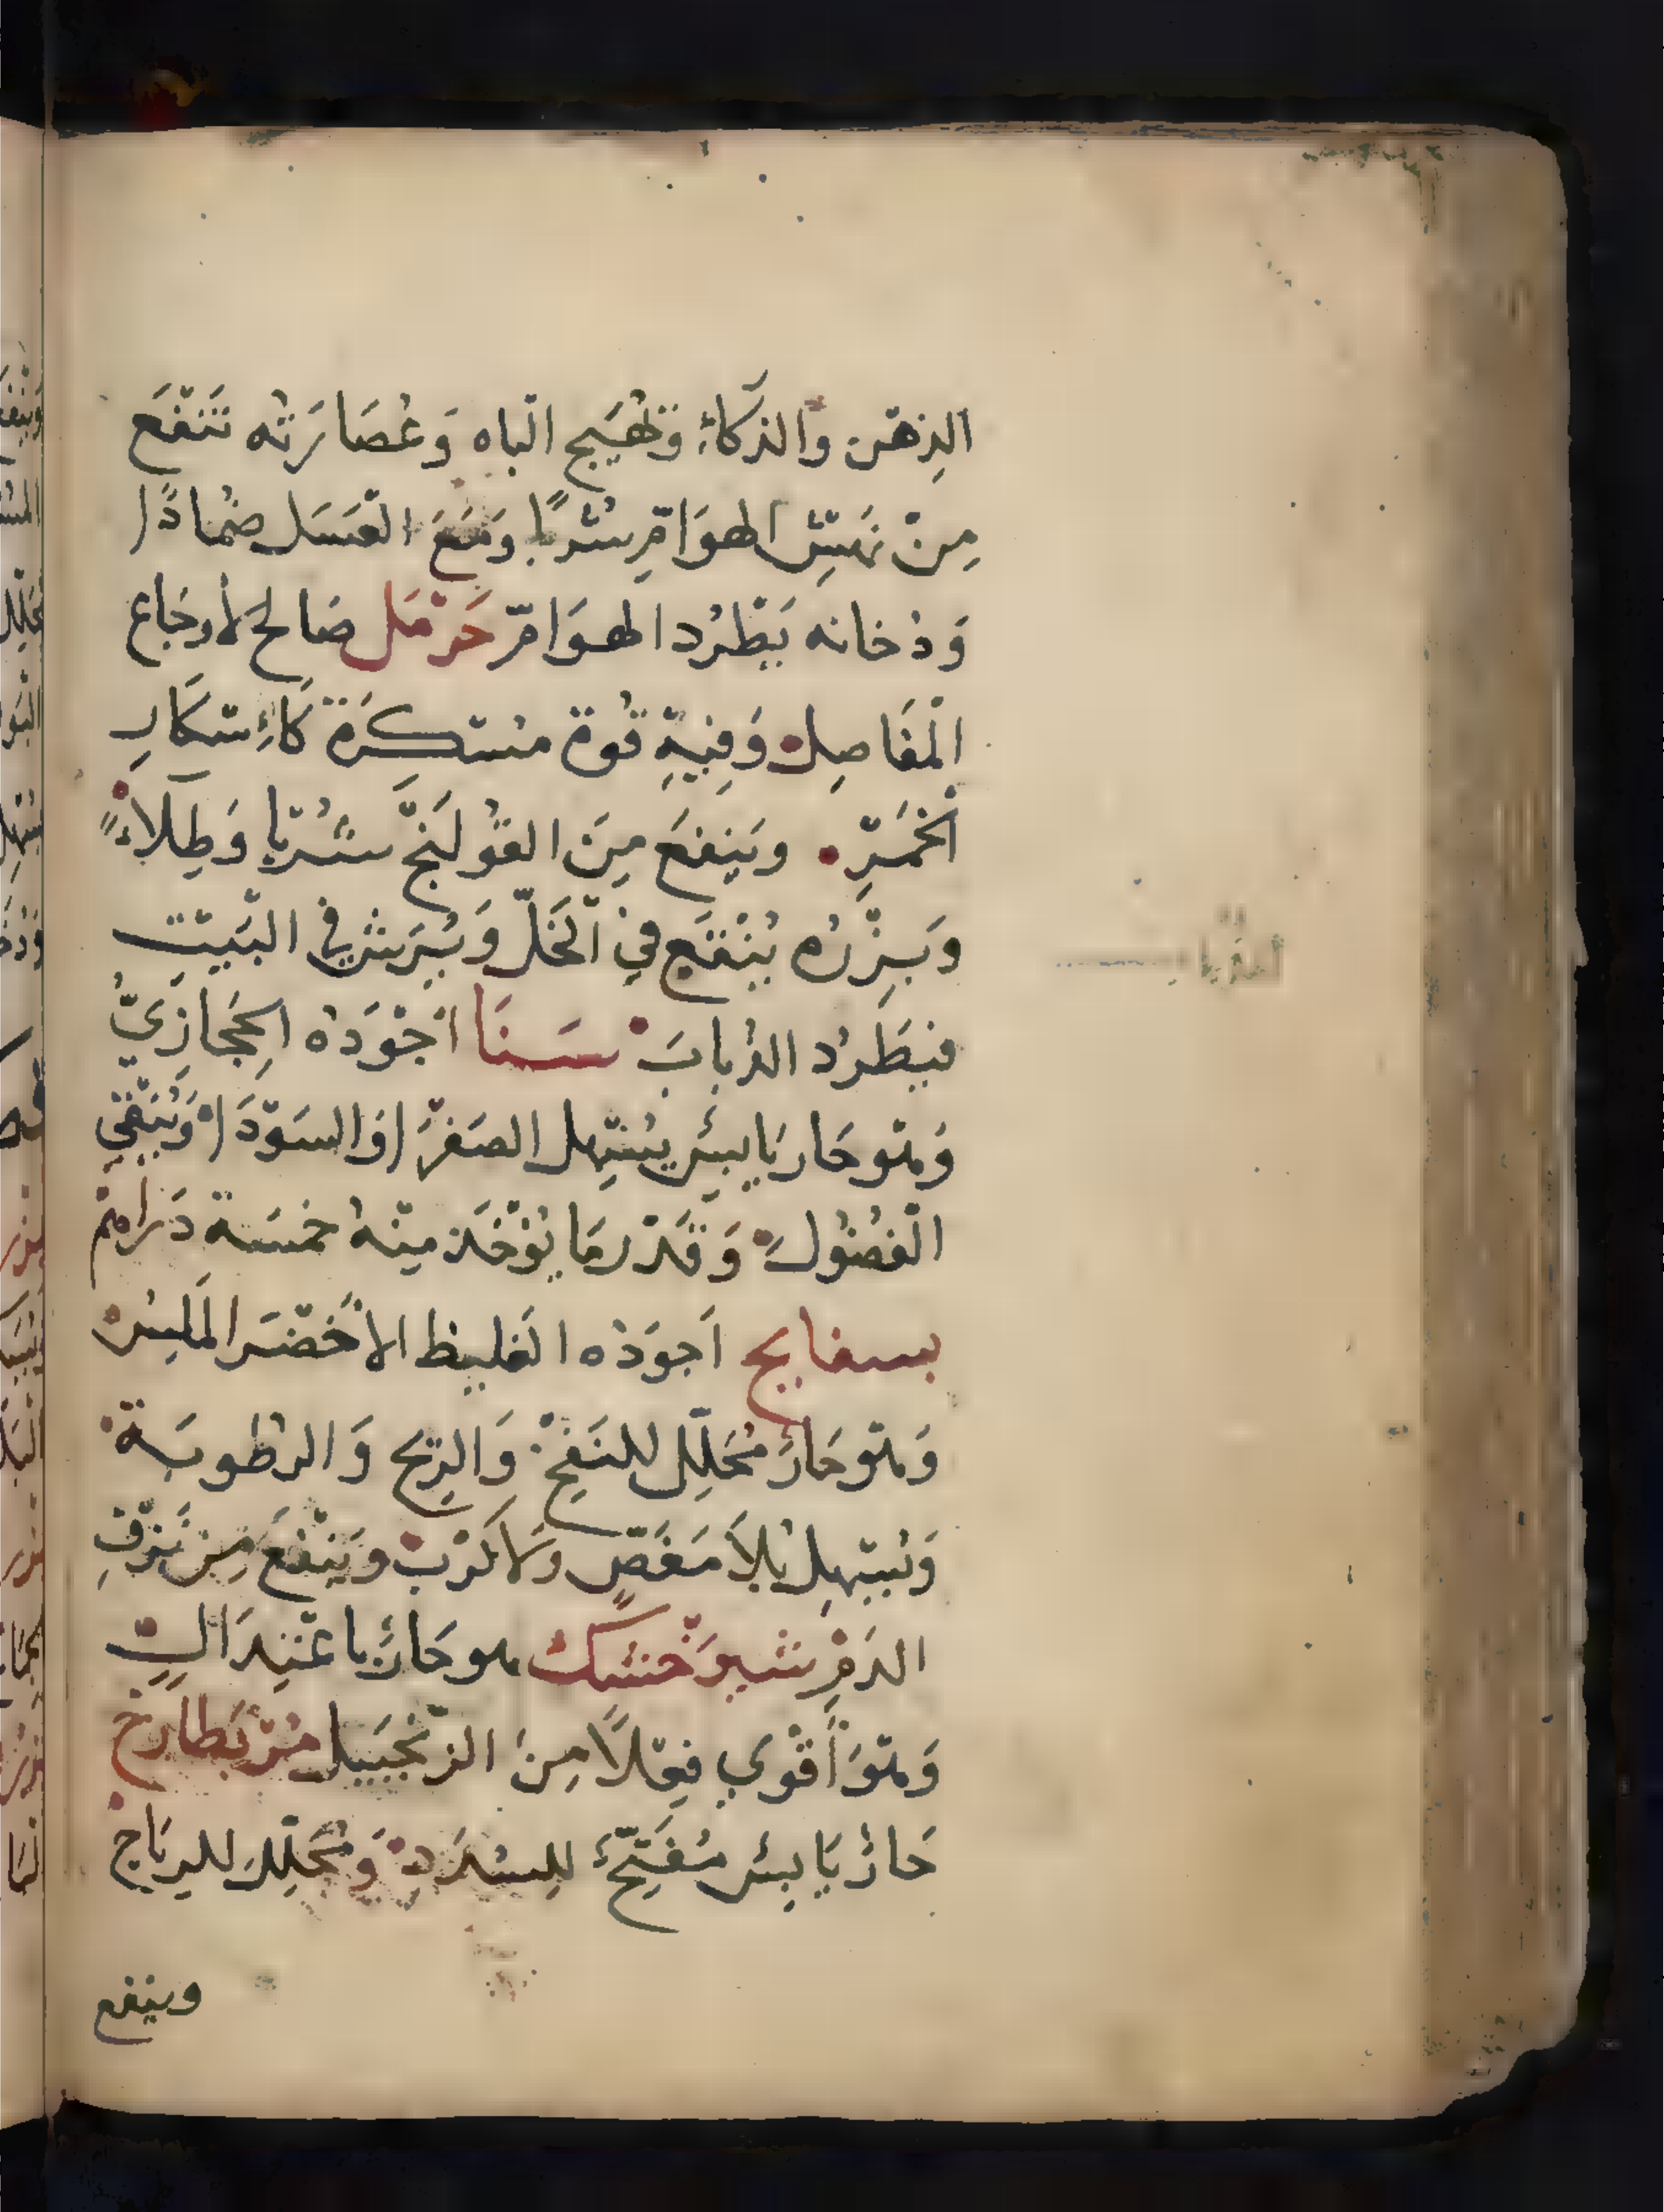 الذِهْن وَالذَكَاءْ وَتُهَيج الْباه وَعُصَارَتُه تَنْفَع
مِنْ نَهَشِ الهوَامِّ شُربًا وَمَعَ الْعَسَل ضمُادًا
وَدُخانه يَطْرُد الهوَامّ حَرْمَل صَالح لأوجَاع
الْمفَاصِل وَفِيهِ قُوة مُسْكِرَة كَاءِسْكَارِ
الْخَمْرِ وَيَنفعَ مِنَ القُولَنْج شُرْبا وَطِلاءً
وَبِزْرُه يُنْقَع في الْخَلّ وَيُرَش في الْبَيْت
فيَطرُد الذُبابَ سَنَا أجْوَدُه الحِجَازِيُّ
وَهْوحَار يَابِس يُسْهِل الصَفْرَا وَالسَوْدَا وَيُنَقْي
الْفُضُول وَقَدْر مَا يُؤْخَذ مِنْهُ خمسَة دَرَاهْم
بسفايج اَجوَدُه الغَليظ الاخْضَر المَلِس
وَهْوحَارٌ مُحَلِّل للنَفْخ وَالرِيح وَالرُطوبَة
وَيُسْهِل بِلاَ مَغَصٍ وَلاَ كَرْب وَيَنْفَعَ مِنْ نَزْفِ
الدَمِ شيرَخشك هو حَارٌ باعْتِدَال
وَهْوَ أَقْوي فِعْلًا مِنَ الزَنْجَبيل مُرْ بَطارخ
حَارٌ يَابِس مُفَتِّحٌ لِلسُدَدِ وَمُحَلِّل للرِيَاح
وينفع